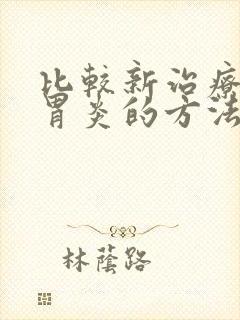 比較新治療
胃炎的方法
林蔭路